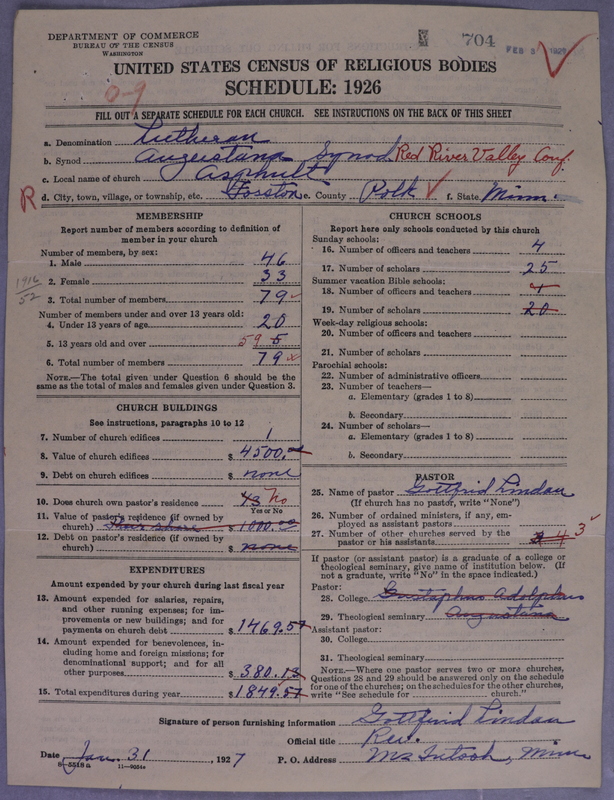 DEPARTMENT OF COMMERCE
BUREAU OF THE CENSUS
WASHINGTON
704
FEB 1927
UNITED STATES CENSUS OF RELIGIOUS BODIES
SCHEDULE: 1926
0-9
FILL OUT A SEPARATE SCHEDULE FOR EACH CHURCH. SEE INSTRUCTIONS ON THE BACK OF THIS SHEET
a. Denomination Lutheran
b. Synod Augustana Synod Red River Valley Conf.
c. Local name of church
R d. City, town, village, or township, etc. Fosston e. County Polk f. State Minn.
MEMBERSHIP
Report number of members according to definition of member in your church
Number of members, by sex:
1. Male 46
2. Female 33
1916
52
3. Total number of members 79
Number of members under and over 13 years old:
4. Under 13 years of age 20
5. 13 years old and over 59 5
6. Total number of members 79
NOTE.—The total given under Question 6 should be the same as the total of males and females given under Question 3.
CHURCH BUILDINGS
See instructions, paragraphs 10 to 12
7. Number of church edifices 1
8. Value of church edifices $ 4500.00
9. Debt on church edifices $ none
10. Does church own pastor's residence No
Yes or No
11. Value of pastor's residence (if owned by church) Their share $ 1000.00
12. Debt on pastor's residence (if owned by church) $ none
EXPENDITURES
Amount expended by your church during last fiscal year
13. Amount expended for salaries, repairs, and other running expenses; for improvements or new buildings; and for payments on church debt $ 1469.57
14. Amount expended for benevolences, including home and foreign missions; for denominational support; and for all other purposes $ 380.13
15. Total expenditures during year $ 1849.57
CHURCH SCHOOLS
Report here only schools conducted by this church
Sunday schools:
16. Number of officers and teachers 4
17. Number of scholars 25
Summer vacation Bible schools:
18. Number of officers and teachers 4
19. Number of scholars 20
Week-day religious schools:
20. Number of officers and teachers
21. Number of scholars
Parochial schools:
22. Number of administrative officers
23. Number of teachers—
a. Elementary (grades 1 to 8)
b. Secondary
24. Number of scholars—
a. Elementary (grades 1 to 8)
b. Secondary
PASTOR
25. Name of pastor Gottfrid Lindau
(If church has no pastor, write "None")
26. Number of ordained ministers, if any, employed as assistant pastors
27. Number of other churches served by the pastor or his assistants 3
If pastor (or assistant pastor) is a graduate of a college or theological seminary, give name of institution below. (If not a graduate, write "No" in the space indicated.)
Pastor:
28. College Gustaphus Adolphus
29. Theological seminary Augustana
Assistant pastor:
30. College
31. Theological seminary
NOTE.—Where one pastor serves two or more churches, Questions 28 and 29 should be answered only on the schedule for one of the churches; on the schedules for the other churches, write "See schedule for church."
Signature of person furnishing information Gottfrid Lindau
Official title Rev.
Date Jan. 31, 1927 P. O. Address McIntosh, Minn
8-5518a 11-9654a